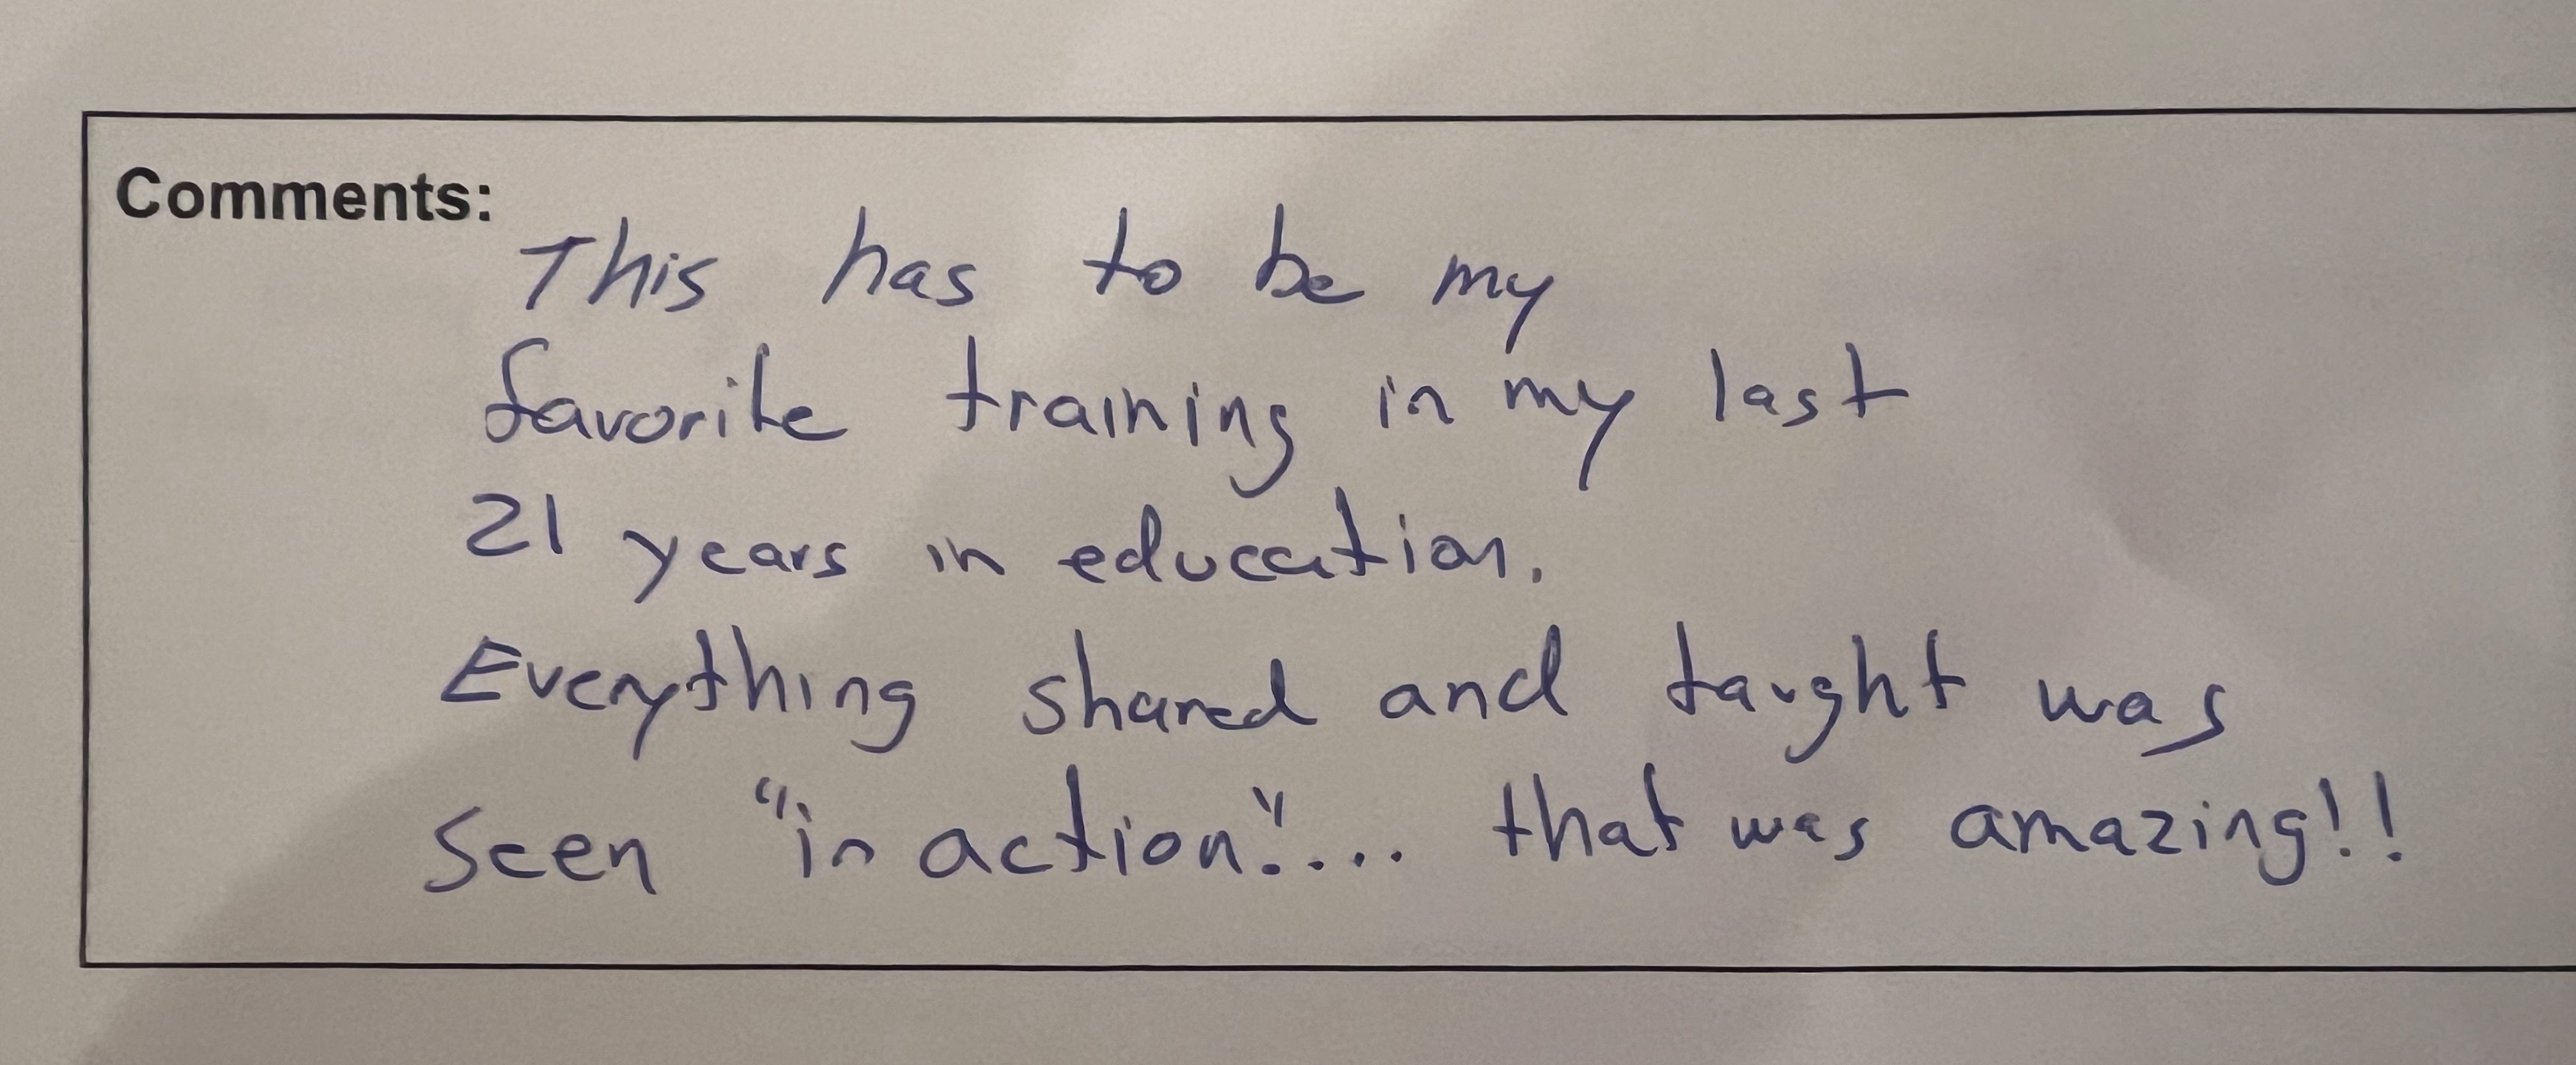 Comments:
This has to be my
favorite training in my last
21 years in education.
Everything shared and taught was
seen "in action".... that was amazing!!